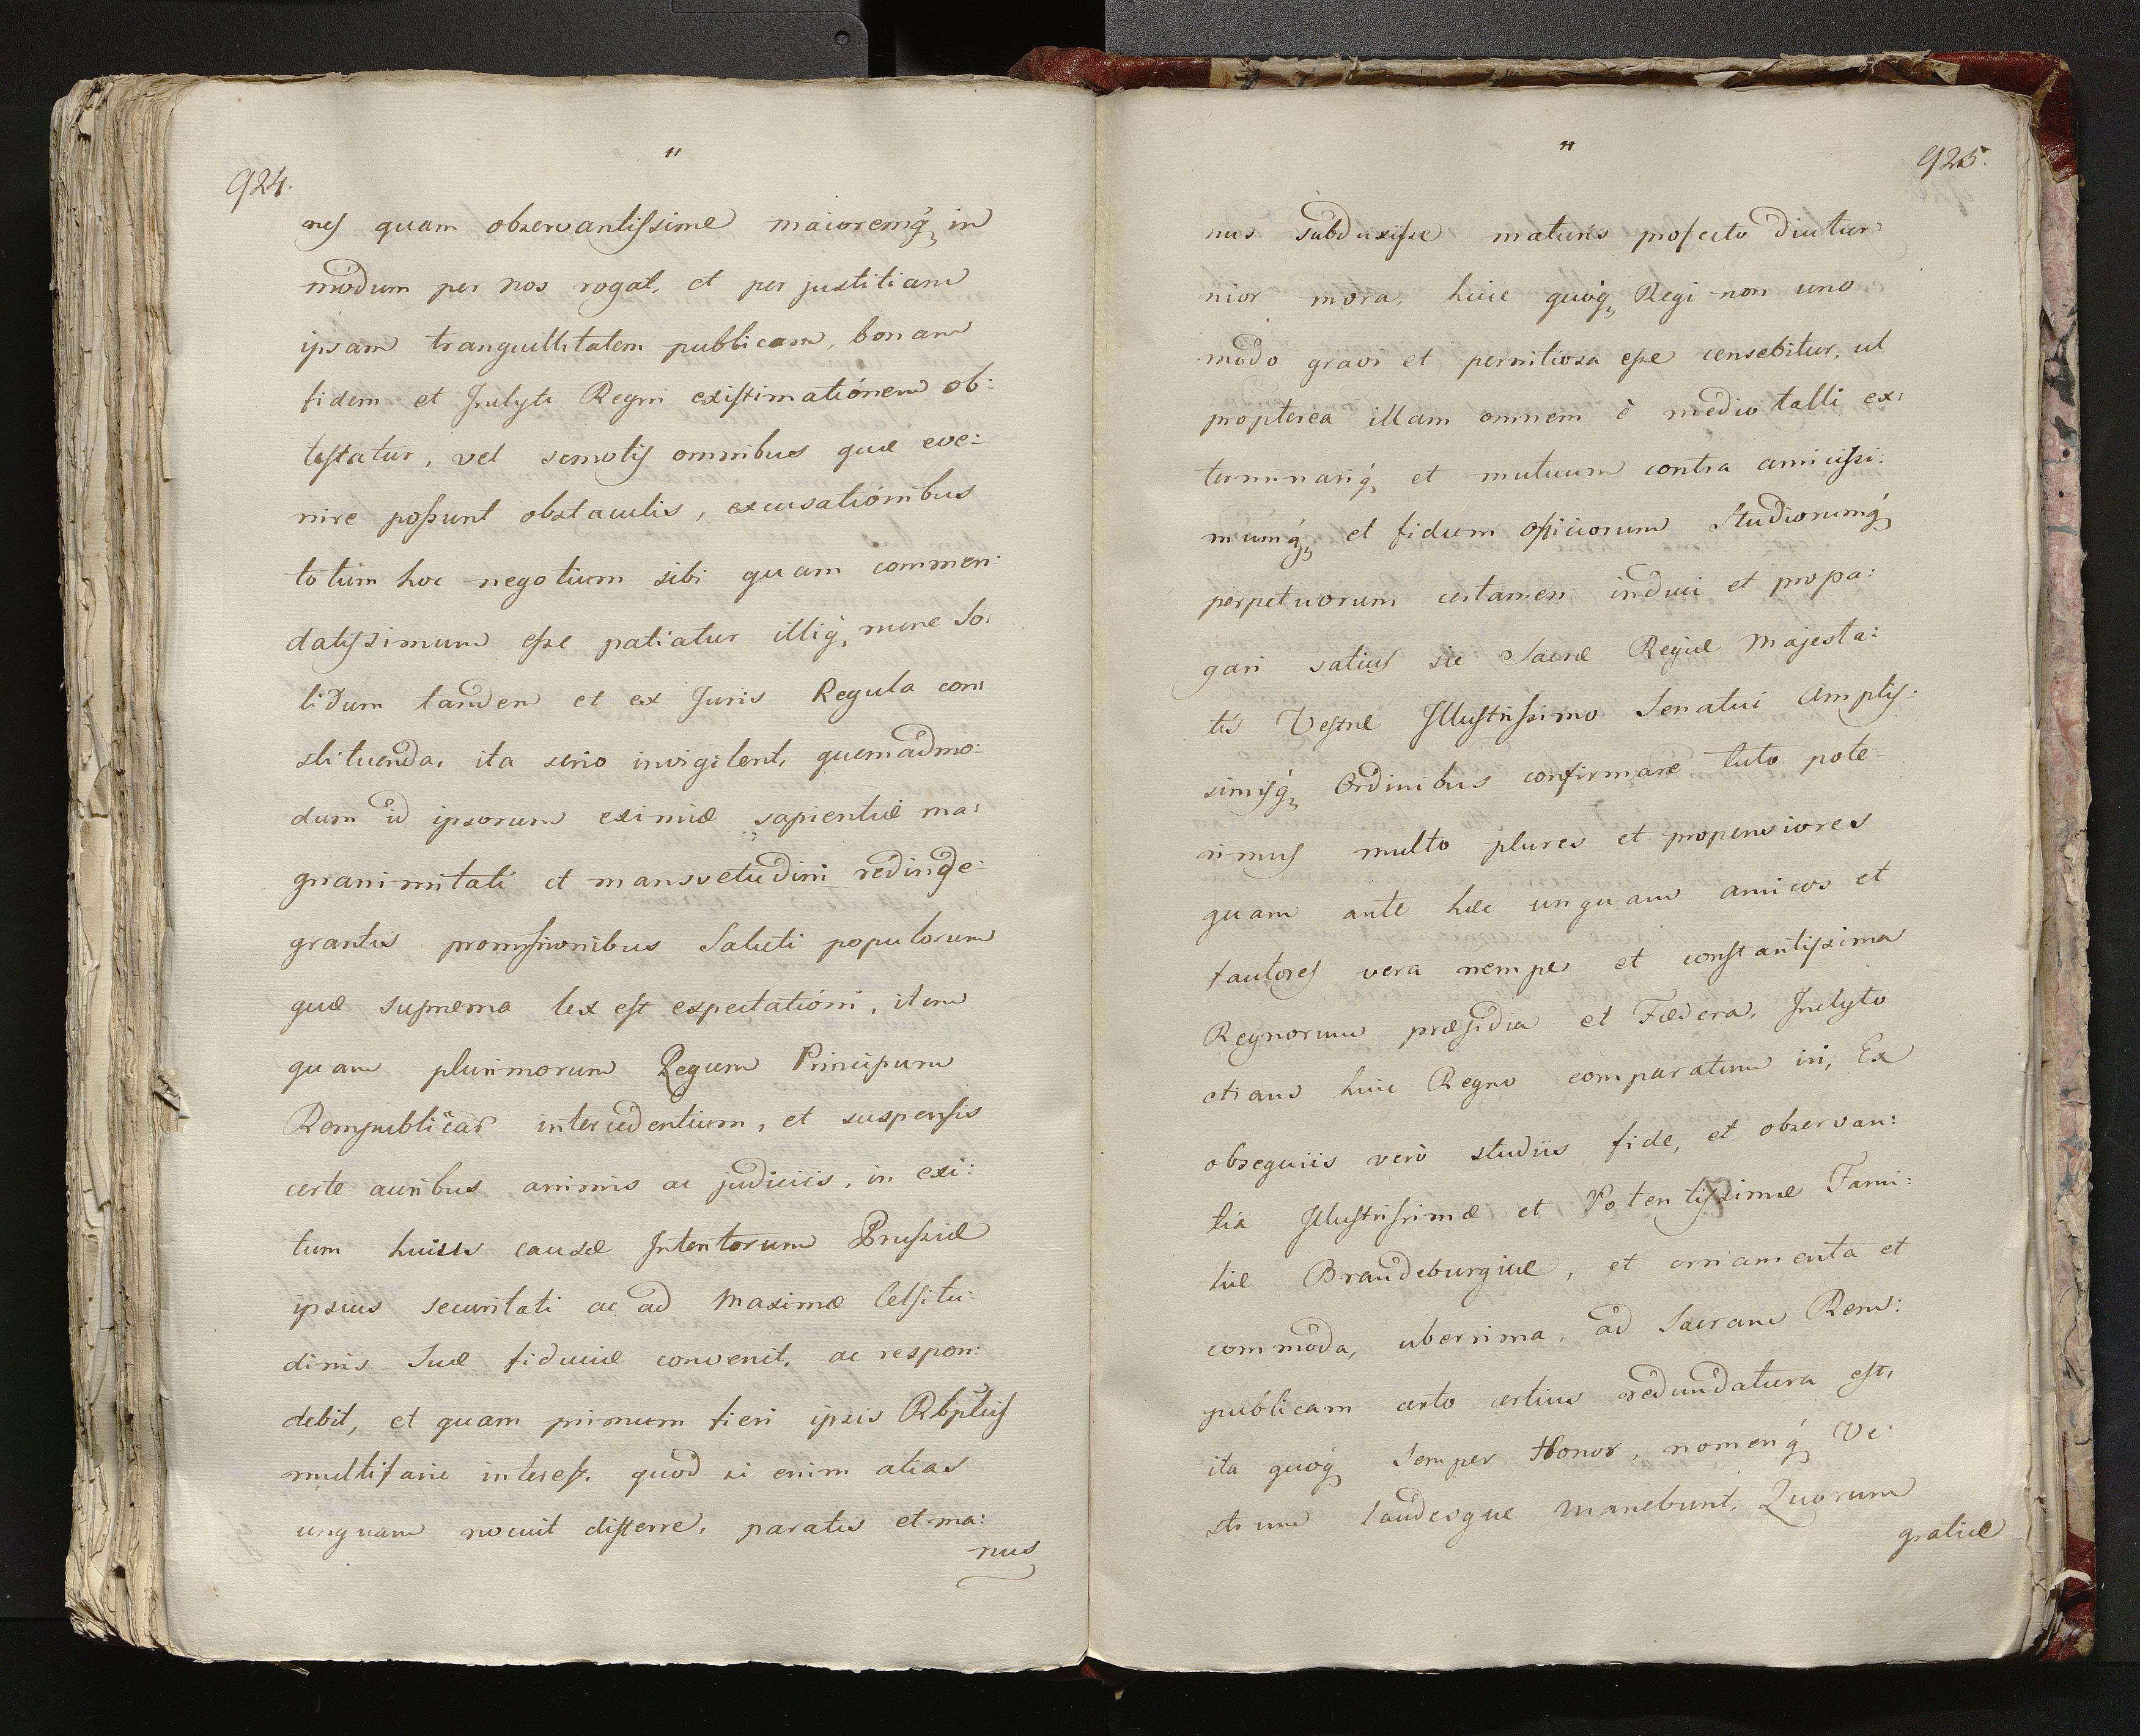 "
924.
nes quam observantissime maioremq́ in
modum per nos rogat, et per justitiam
ipsam tranquillitatem publicam, bonam
fidem et Inclyti Regni existimationem ob:
testatur, vel semotis omnibus quæ eve:
nire possunt obstaculis, excusationibus
totum hoc negotium sibi quam commen:
datissimum esse patiatur illiq́ nunc so:
lidum tandem et ex Juris Regula con:
stituenda, ita serio invigilent, quemadmo:
dum id ipsorum eximiæ sapientiæ ma:
gnanimitati et mansvetudini redinde:
grantis promissionibus Saluti populorum
quæ suprema lex est expectationi, item
quam plurimorum Regum Principum
Rempublicas intercedentium, et suspensis
certe auribus animis ac judiciis, in exi:
tum huius causæ Intentorum Prussiæ
ipsius securitati ac ad Maximæ Celsitu:
dinis Suæ fiduciæ convenit, ac respon:
debit, et quam primum fieri ipsis Rbplcis
multifarie interest. quod si enim alias
unquam nocuit differre, paratis et ma:
nus
"
925.
nus subduxisse maturis profecto diutur:
nior mora, huic quoq́ Regi non uno
modo gravi et pernitiosa esse censebitur, ut
propterea illam omnem è medio talli ex:
terminariq́ et mutuum contra amicissi:
mumq́ et fidum officiorum Studiorumq́
perpetuorum certamen induci et propa:
gari satius sie Sacræ Regiæ Majesta:
tis Vestræ Illustrissimo Senatui Amplis:
simisq́ Ordinibus confirmare tuto pote-
rimus multo plures et propensiores
quam ante hæc unquam amicos et
fautores vera nempe et constantissima
Regnorum præsidia et Fædera, Inclyto
etiam huic Regno comparatum iri, Ex
obsequiis verò studiis fide, et observan:
tia Illustrissimæ et Potentissimæ Fami:
liæ Brandeburgiæ, et ornamenta et
commoda, uberrima, ad Sacram Rem:
publicam certo certius redundatura est,
ita quoq́ Semper Honor, nomenq́ Ve:
strum laudesque manebunt, Quorum
gratiæ